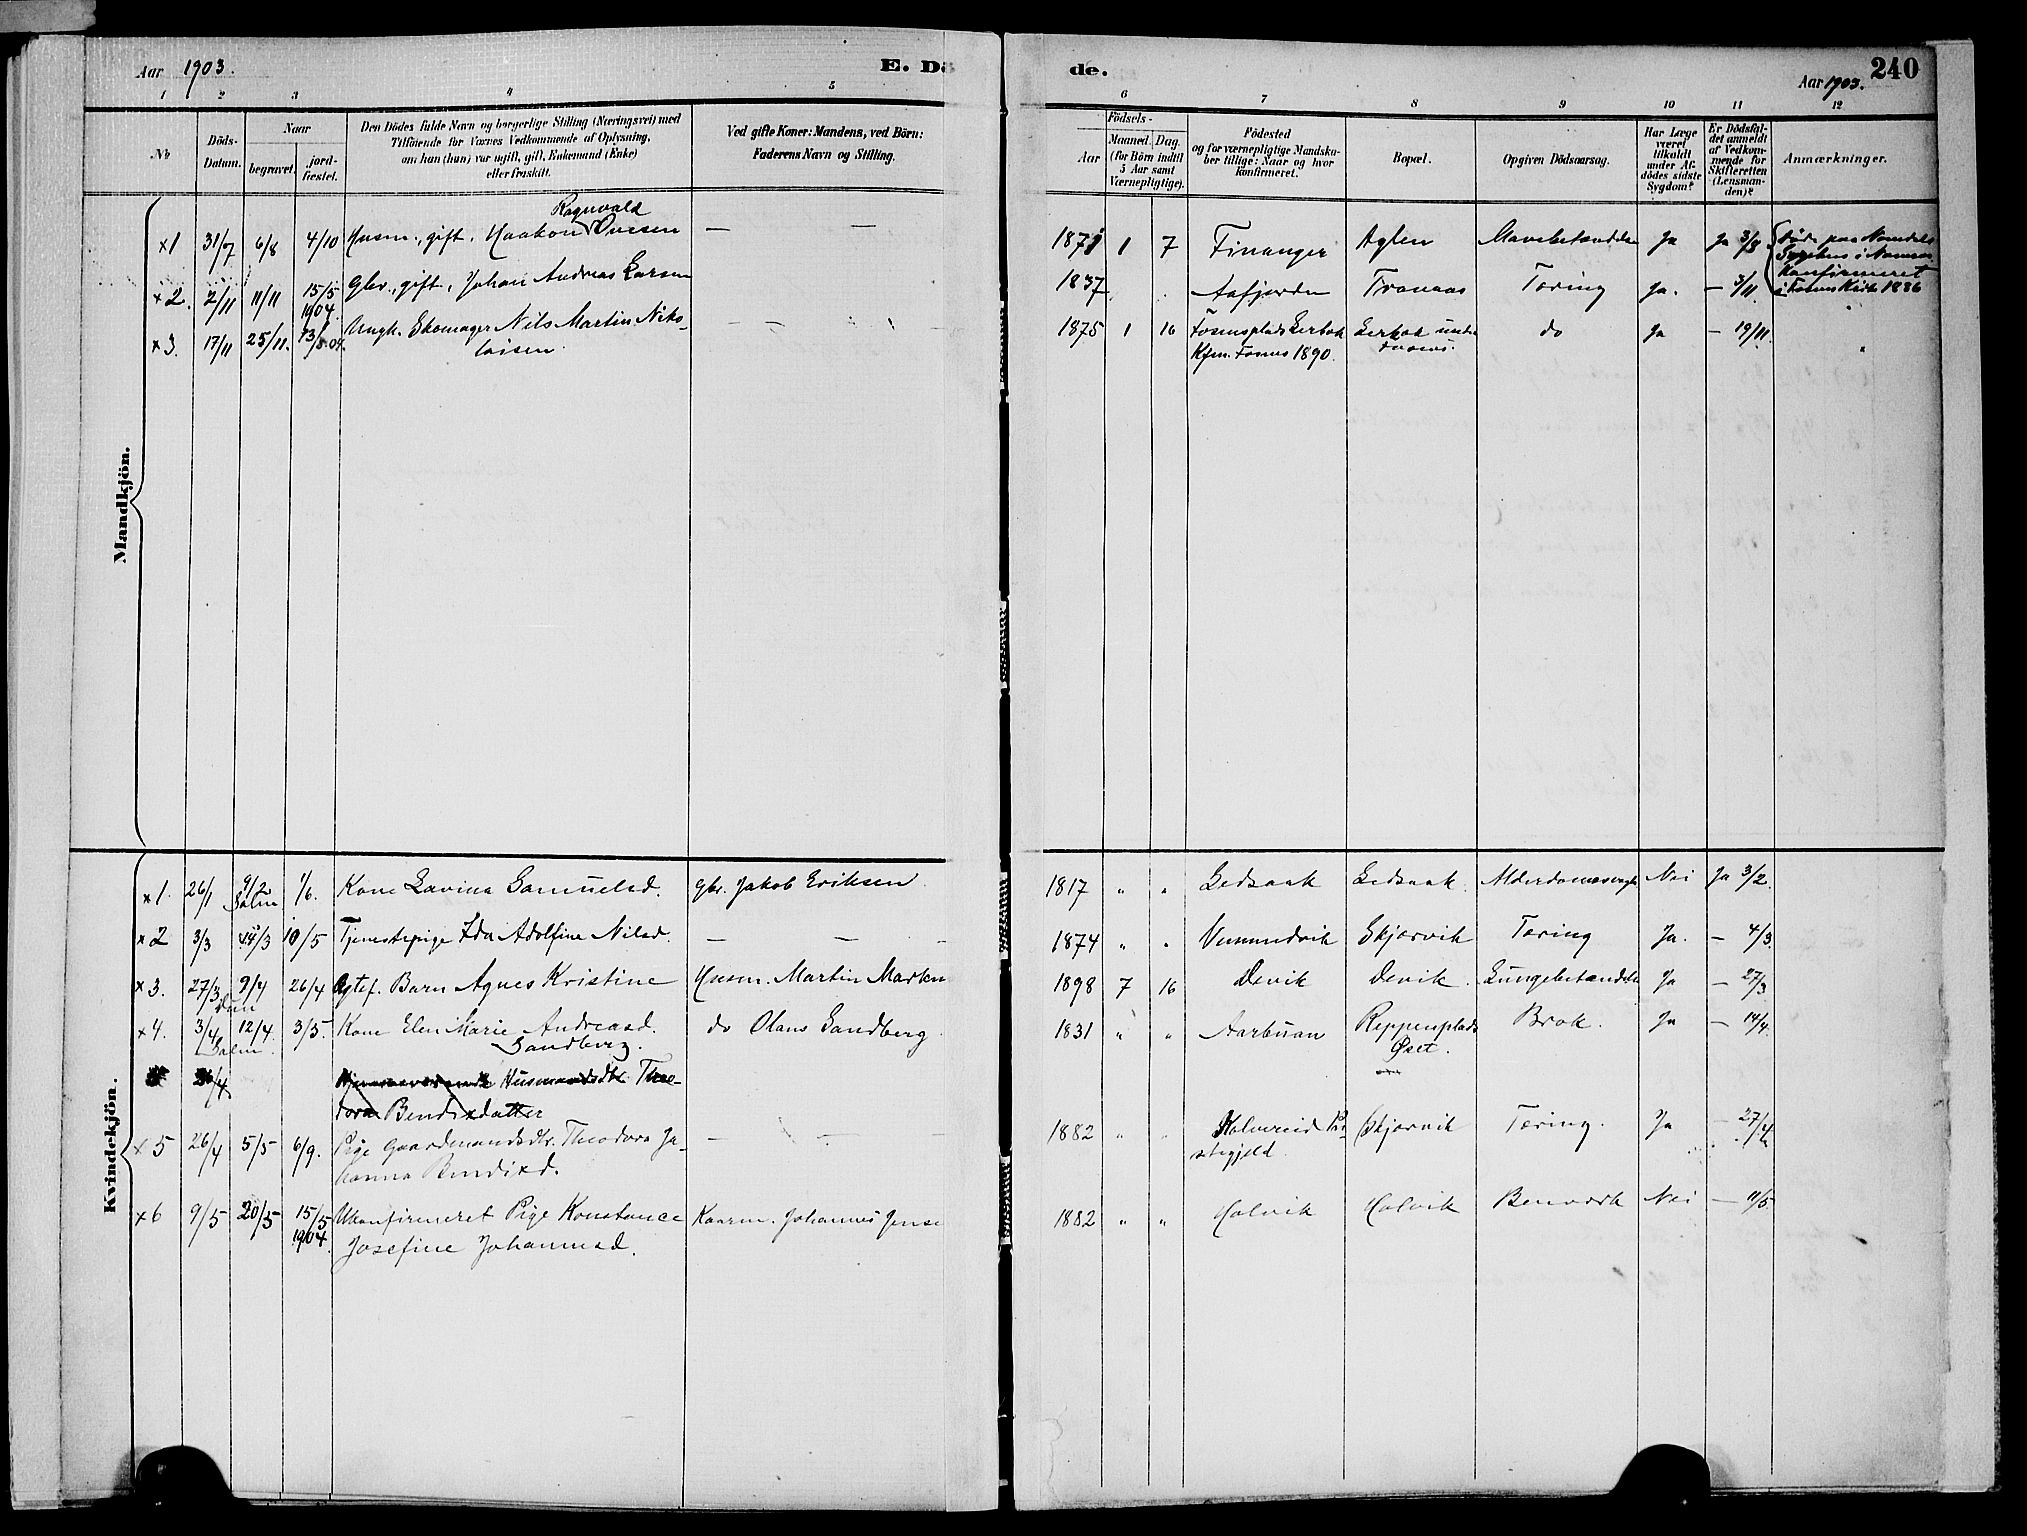 Aar 1903.
E. Dö
de.
Aar 1903.
240
1 2 3 4 5 6 7 8 9 10 11 12
No
Döds-Datum.
Naar
begravet.
jord-fæstet.
Den Dödes fulde Navn og borgerlige Stilling (Næringsvei) med
Tilföiende for Voxnes Vedkommende af Oplysning,
om han (hun) var ugift, gift, Enkemand (Enke)
eller fraskilt.
Ved gifte Koner: Mandens, ved Börn:
Faderens Navn og Stilling.
Födsels-
Aar
Maaned. Dag.
(for Börn indtil
5 Aar samt
Værnepligtige).
Födested
og for værnepligtige Mandska-
ber tillige: Naar og hvor
konfirmeret.
Bopæl.
Opgiven Dödsaarsag.
Har Læge
været
tilkaldt
under Af-
dödes sidste
Sygdom?
Er Dödsfal-
det anmeldt
af Vedkom-
mende for
Skifteretten
(Lensman-
den)?
Anmærkninger.
Mandkjön.
Ragnvald
x1 31/7 6/8 4/10 Husm., gift, Haakon Ovesen — — 1871 1 7 Finanger Aglen Mavebetændelse Ja Ja 3/8 Døde paa Namdals
Sygehus i Namsos
Konfirmeret
i Fosnes Kirke 1886
x2. 2/11 11/11 15/5 1904. Gbr., gift, Johan Andreas Larsen 1837 Aafjorden Tranaas Tæring Ja. — 3/11
x3. 17/11 25/11. 13/5 04. Ungk. Skomager Nils Martin Niko-
laisen. 1875 1 16 Fosnesplads Lerbak
Kfm. Fosnes 1890.
Lerbak under
Fosnes.
do Ja — 19/11.
Kvindekjön.
x1. 26/1 9/2 Salm 1/6. Kone Lavina Samuelsd. Gbr. Jakob Eriksen. 1817 " " Ledsaak Ledsaak. Alderdomssvaghed Nei Ja 3/2.
x2 3/3 14/3 10/5 Tjenestepige Ida Adolfine Nilsd. — — — 1874 " " Vemundvik Skjærvik Tæring Ja. — 4/3.
x3. 27/3 9/4 26/4 Ægtef. Barn Agnes Kristine Husm. Martin Marten 1898 7 16 Devik Devik. Lungebetændelse Ja — 27/3
x4. 3/4 12/4. 3/5. Kone Elen Marie Andreasd.
Sandberg.
do Olaus Sandberg. 1831 " " Aarbuan Reppenplads
Øset.
Brok. Ja — 14/4.
Salm.
26/4 Husmandsdtr. Theo-
dora Bendixdatter
x5 26/4 5/5 6/9. Pige Gaardmandsdtr. Theodora Jo-
hanna Bendixd.
— — — 1882 " " Kolvereid Præ-
stegjeld
Skjærvik Tæring. Ja — 27/4
x6 9/5 20/5 15/5 1904. Ukonfirmeret Pige Konstance
Josefine Johannesd.
Kaarm. Johannes Jense 1882 " " Calvik Calvik Benværk Nei — 11/5